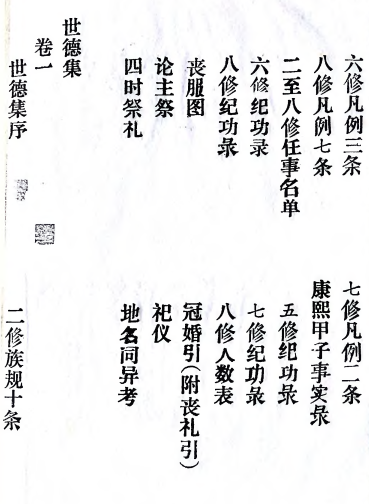 六修凡例三条
七修凡例二条
八修凡例七条
康熙甲子事实录
二至八修任事名单
五修纪功录
六修纪功录
七修纪功录
八修纪功录
八修人数表
丧服图
冠婚引(附丧礼引)
论主祭
祀仪
四时祭礼
地名同异考
世德集
卷一
世德集序
二修族规十条